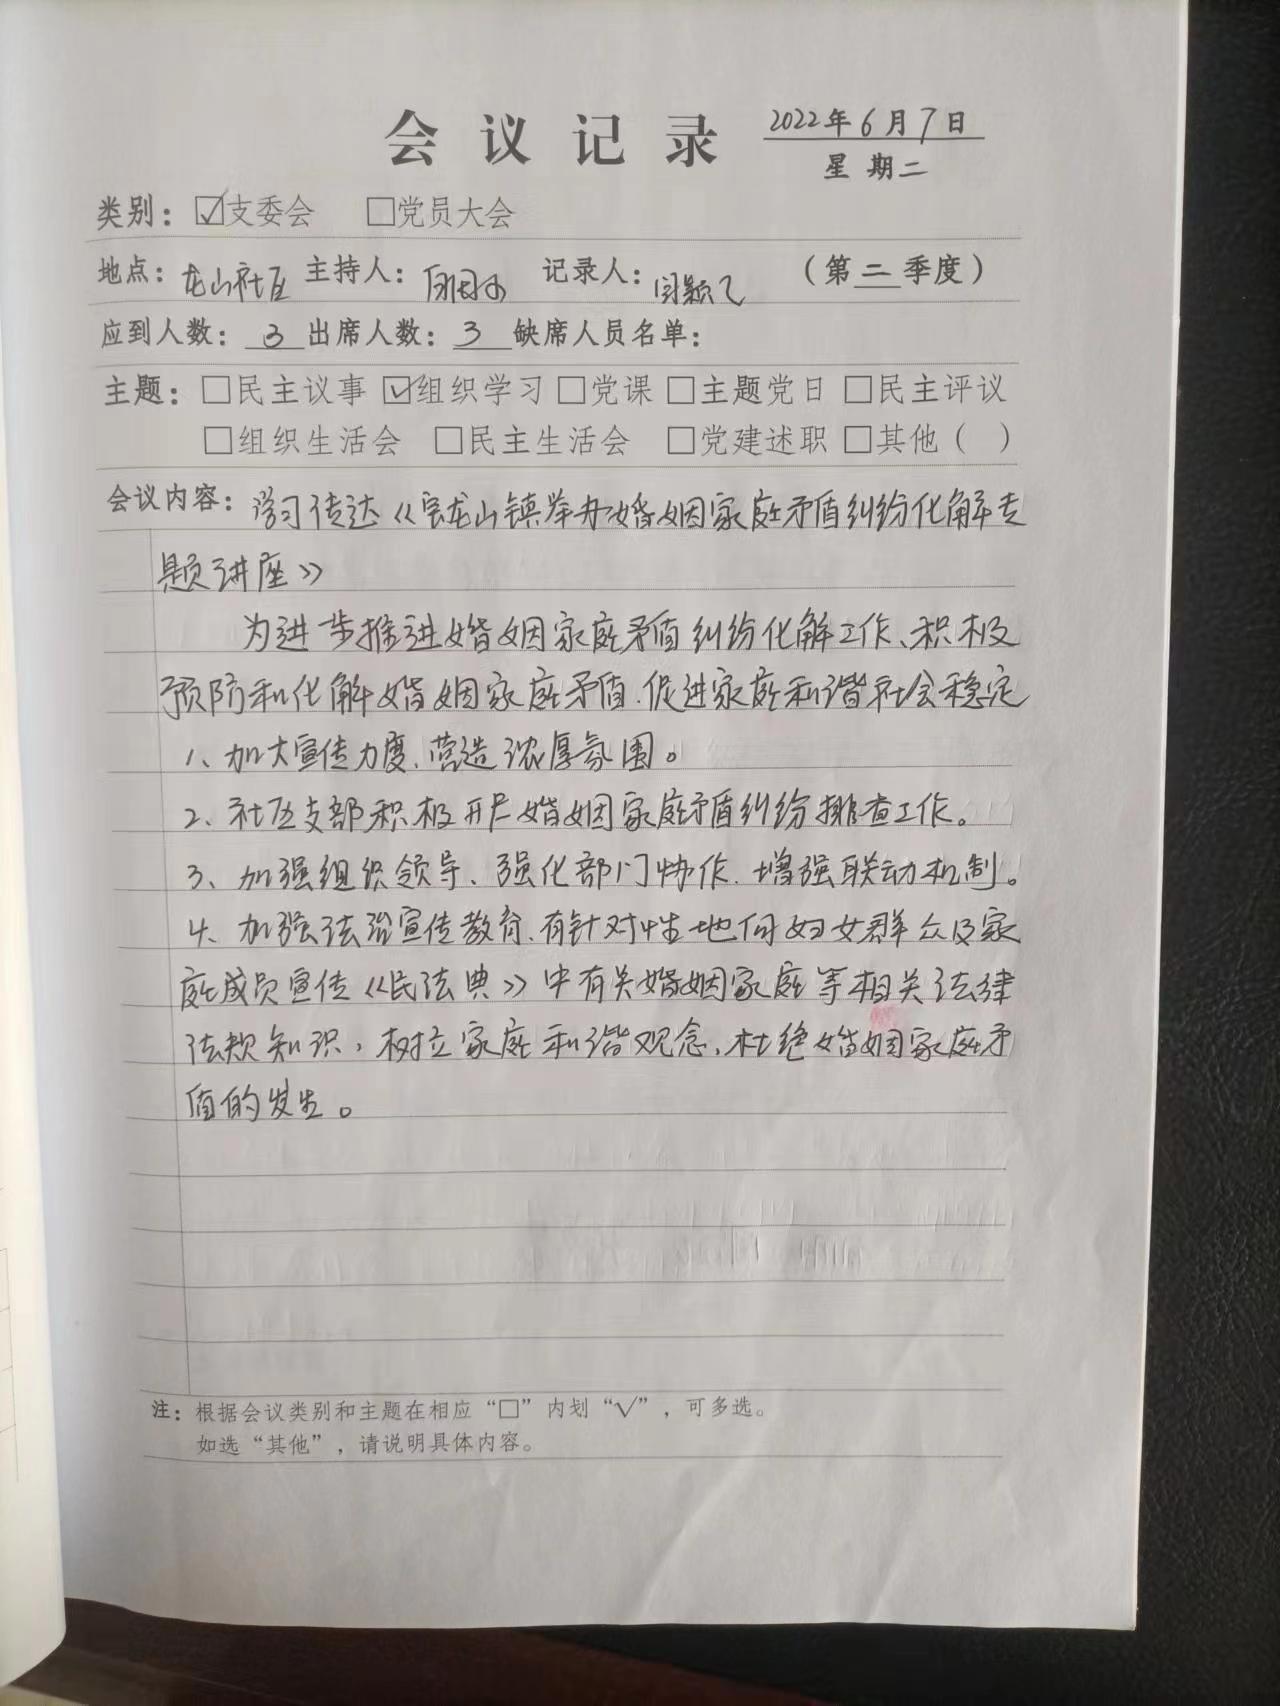 会议记录 2022年6月7日
星期二
类别：☑支委会 □党员大会
地点：龙山社区 主持人： 记录人： （第二季度）
应到人数：3 出席人数：3 缺席人员名单：
主题：□民主议事 ☑组织学习 □党课 □主题党日 □民主评议
□组织生活会 □民主生活会 □党建述职 □其他（ ）
会议内容：学习传达《宝龙山镇举办婚姻家庭矛盾纠纷化解专
题讲座》
为进一步推进婚姻家庭矛盾纠纷化解工作、积极
预防和化解婚姻家庭矛盾.促进家庭和谐社会稳定
1、加大宣传力度.营造浓厚氛围。
2、社区支部积极开展婚姻家庭矛盾纠纷排查工作。
3、加强组织领导、强化部门协作.增强联动机制。
4、加强法治宣传教育.有针对性地向妇女群众及家
庭成员宣传《民法典》中有关婚姻家庭等相关法律
法规知识，树立家庭和谐观念，杜绝婚姻家庭矛
盾的发生。
注：根据会议类别和主题在相应“□”内划“√”，可多选。
如选“其他”，请说明具体内容。